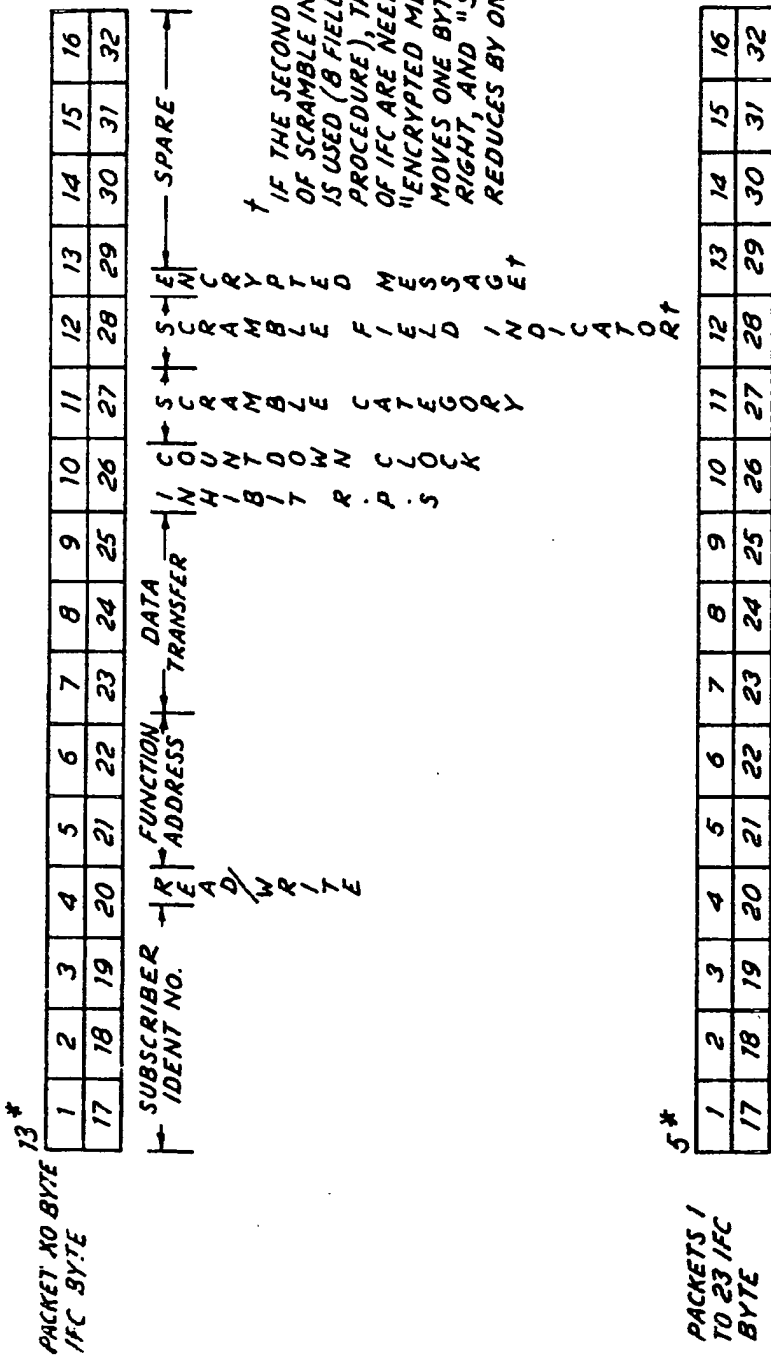 13*
PACKET X0 BYTE 1 2 3 4 5 6 7 8 9 10 11 12 13 14 15 16
IFC BYTE 17 18 19 20 21 22 23 24 25 26 27 28 29 30 31 32
SUBSCRIBER IDENT NO.
READ/WRITE
FUNCTION ADDRESS
DATA TRANSFER
INHIBIT R.P.S
COUNTDOWN CLOCK
SCRAMBLE CATEGORY
SCRAMBLE FIELD INDICATOR†
ENCRYPTED MESSAGE†
SPARE
† IF THE SECOND
OF SCRAMBLE IN
IS USED (8 FIEL
PROCEDURE), TH
OF IFC ARE NEE
"ENCRYPTED ME
MOVES ONE BYT
RIGHT, AND "S
REDUCES BY ON
5*
PACKETS 1 1 2 3 4 5 6 7 8 9 10 11 12 13 14 15 16
TO 23 IFC 17 18 19 20 21 22 23 24 25 26 27 28 29 30 31 32
BYTE